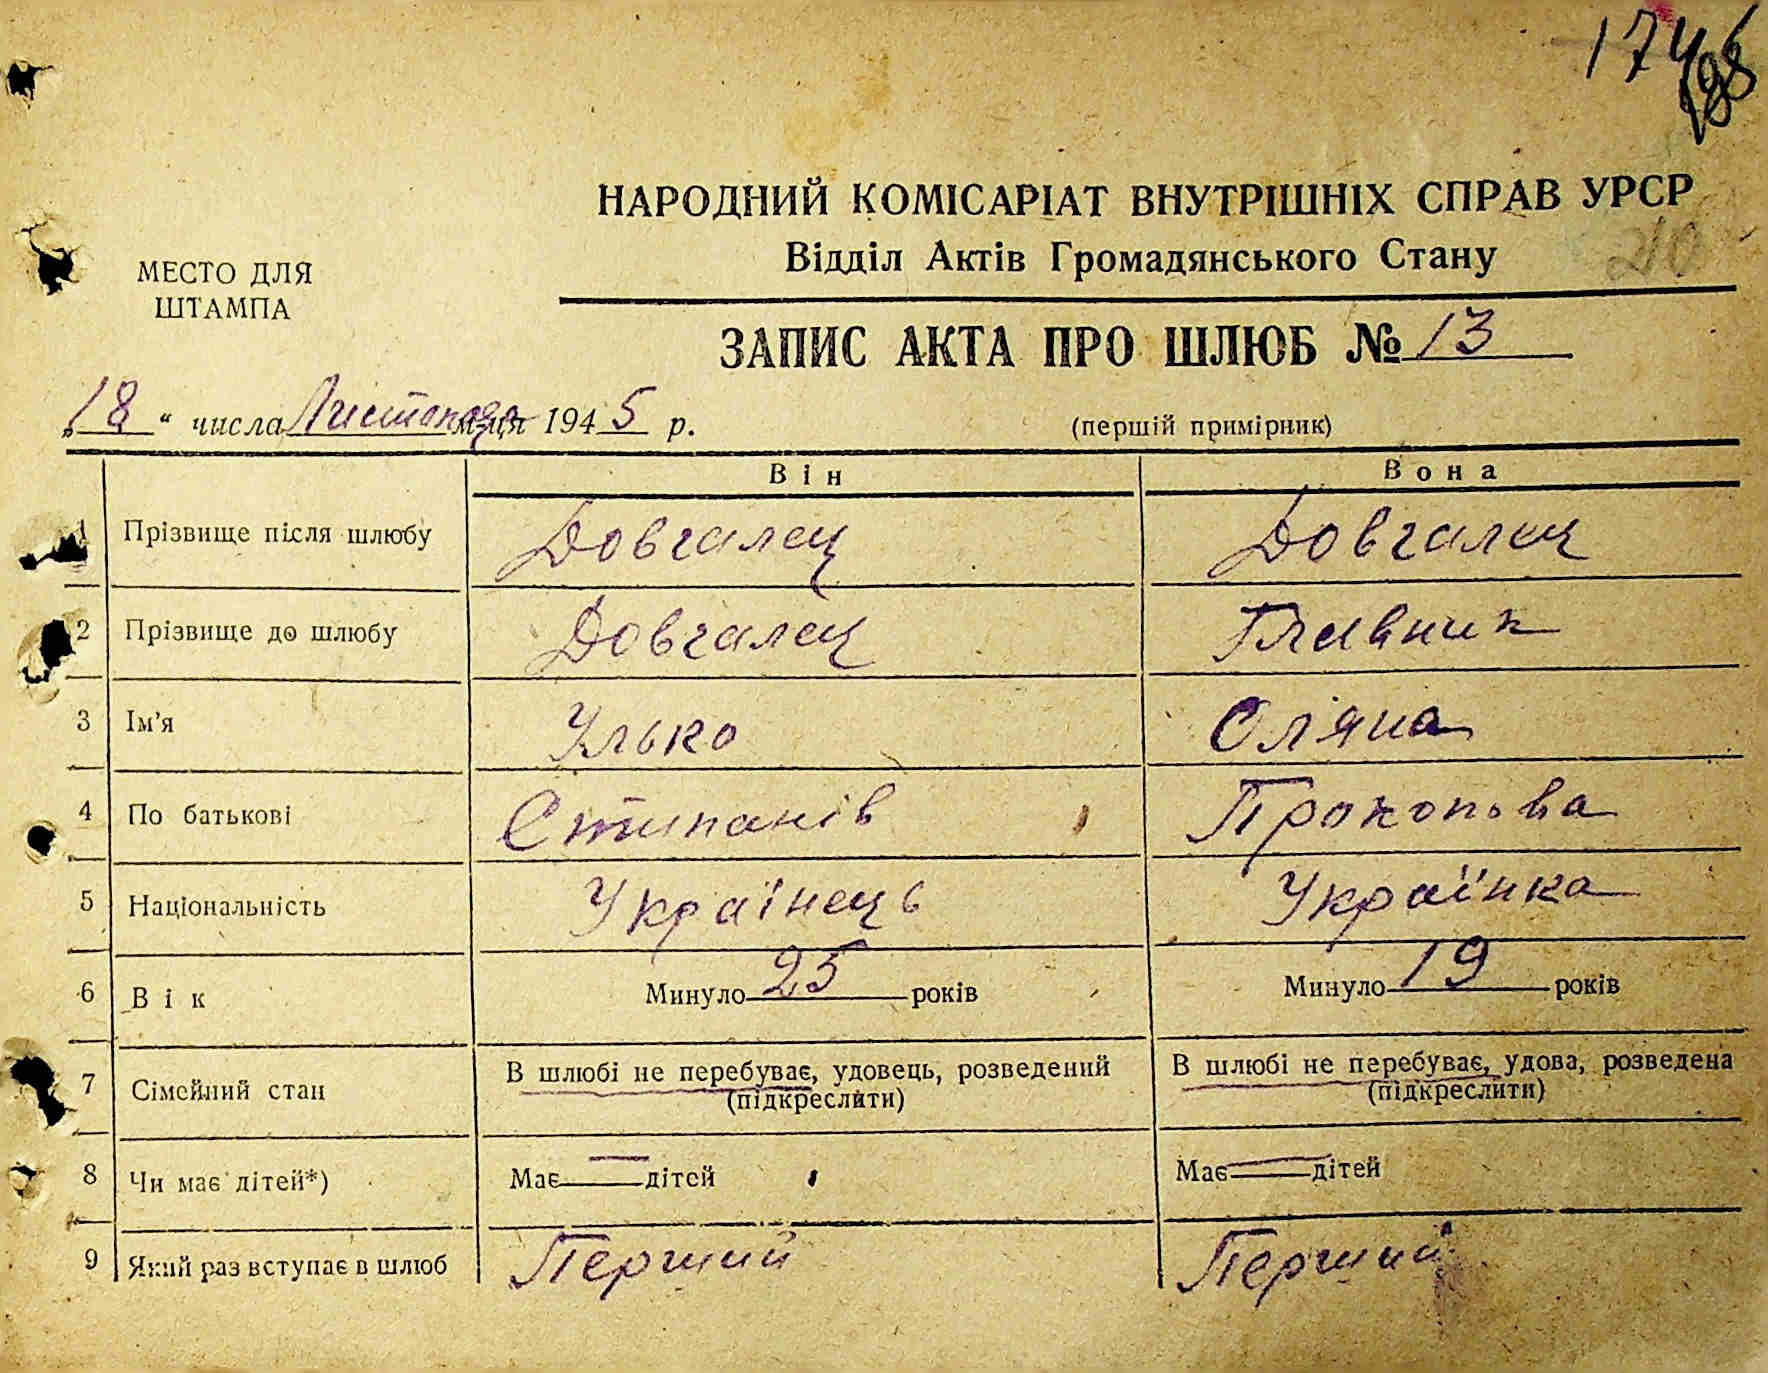 174
198
НАРОДНИЙ КОМІСАРІАТ ВНУТРІШНІХ СПРАВ УРСР
Відділ Актів Громадянського Стану
210
МЕСТО ДЛЯ
ШТАМПА
ЗАПИС АКТА ПРО ШЛЮБ № 13
„18“ числа Листопада м-ця 1945 р.
(першій примірник)
Він Вона
1 Прізвище після шлюбу Довгалец Довгалец
2 Прізвище до шлюбу Довгалец Главник
3 Ім'я Улько Оляна
4 По батькові Стипанів Прокопова
5 Національність Українець Українка
6 Вік Минуло 25 років Минуло 19 років
7 Сімейний стан В шлюбі не перебуває, удовець, розведений В шлюбі не перебуває, удова, розведена
(підкреслити) (підкреслити)
8 Чи має дітей*) Має — дітей Має — дітей
9 Який раз вступає в шлюб Перший Перший